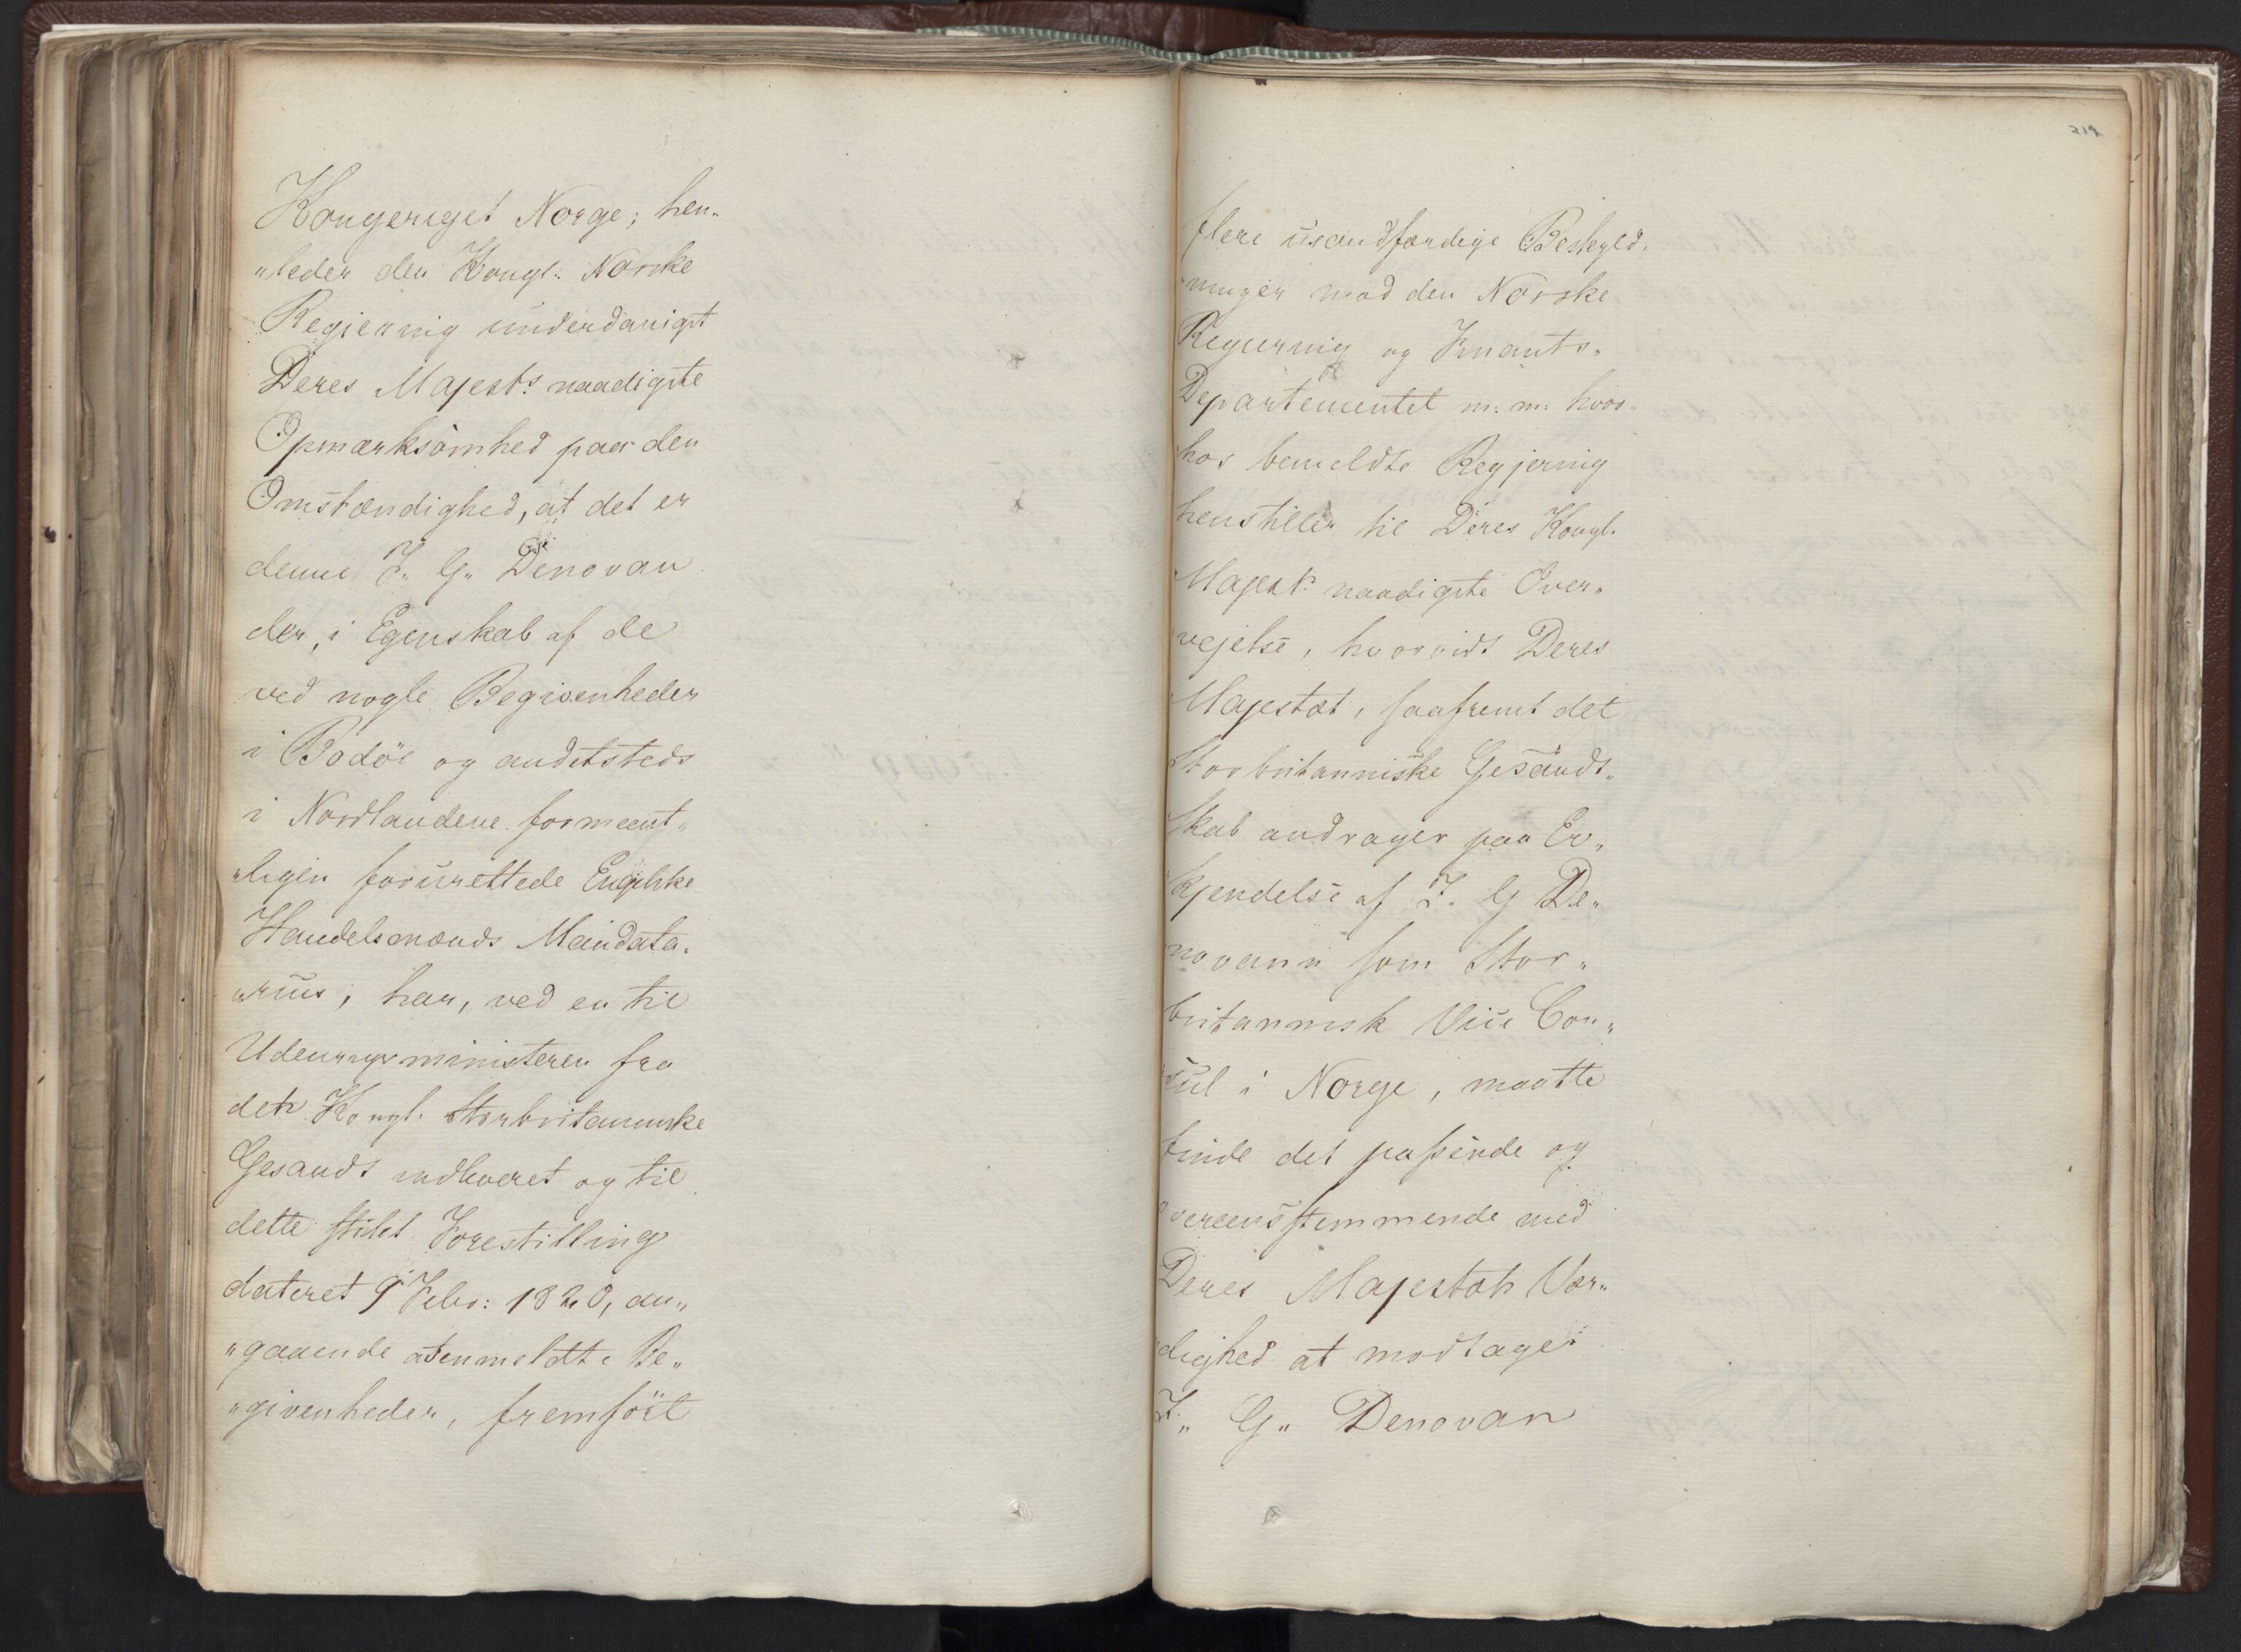 Kongeriget Norge; hen„
„leder den Kongl: Norske
Regjering underdanigst
Deres Majests: naadigste
Opmærksomhed paa den
Omstændighed, at det er
denne J. G. Denovan
der, i Egenskab af de
ved nogle Begivenheder
i Bodöe og andetsteds
i Nordlandene formeent„
„ligen forurettede Engelske
Handelsmænds Mandata„
„rius, har, ved en til
Udenrigsministeren fra
det Kongl. Storbritanniske
Gesandt indleveret og til
dette stilet Forestilling
dateret 9 Febr: 1820, an„
„gaaende ovenmeldte Be„
„givenheder, fremfört
219
flere usandfærdige Beskyld„
„ninger mod den Norske
Regjering og Finants„
Departementet m: m: hvor„
hos bemeldte Regjering
henstiller til Deres Kongl.
Majests: naadigste Over„
vejelse, hvorvidt Deres
Majestæt, saafremt det
Storbritanniske Gesandt„
skab andrager paa Er„
kjendelse af J. G De„
novann som Stor„
britannisk Vice Con„
sul i Norge, maatte
finde det passende og
overeensstemmende med
Deres Majestæts Vær„
dighed at modtage
J„ G„ Denovan